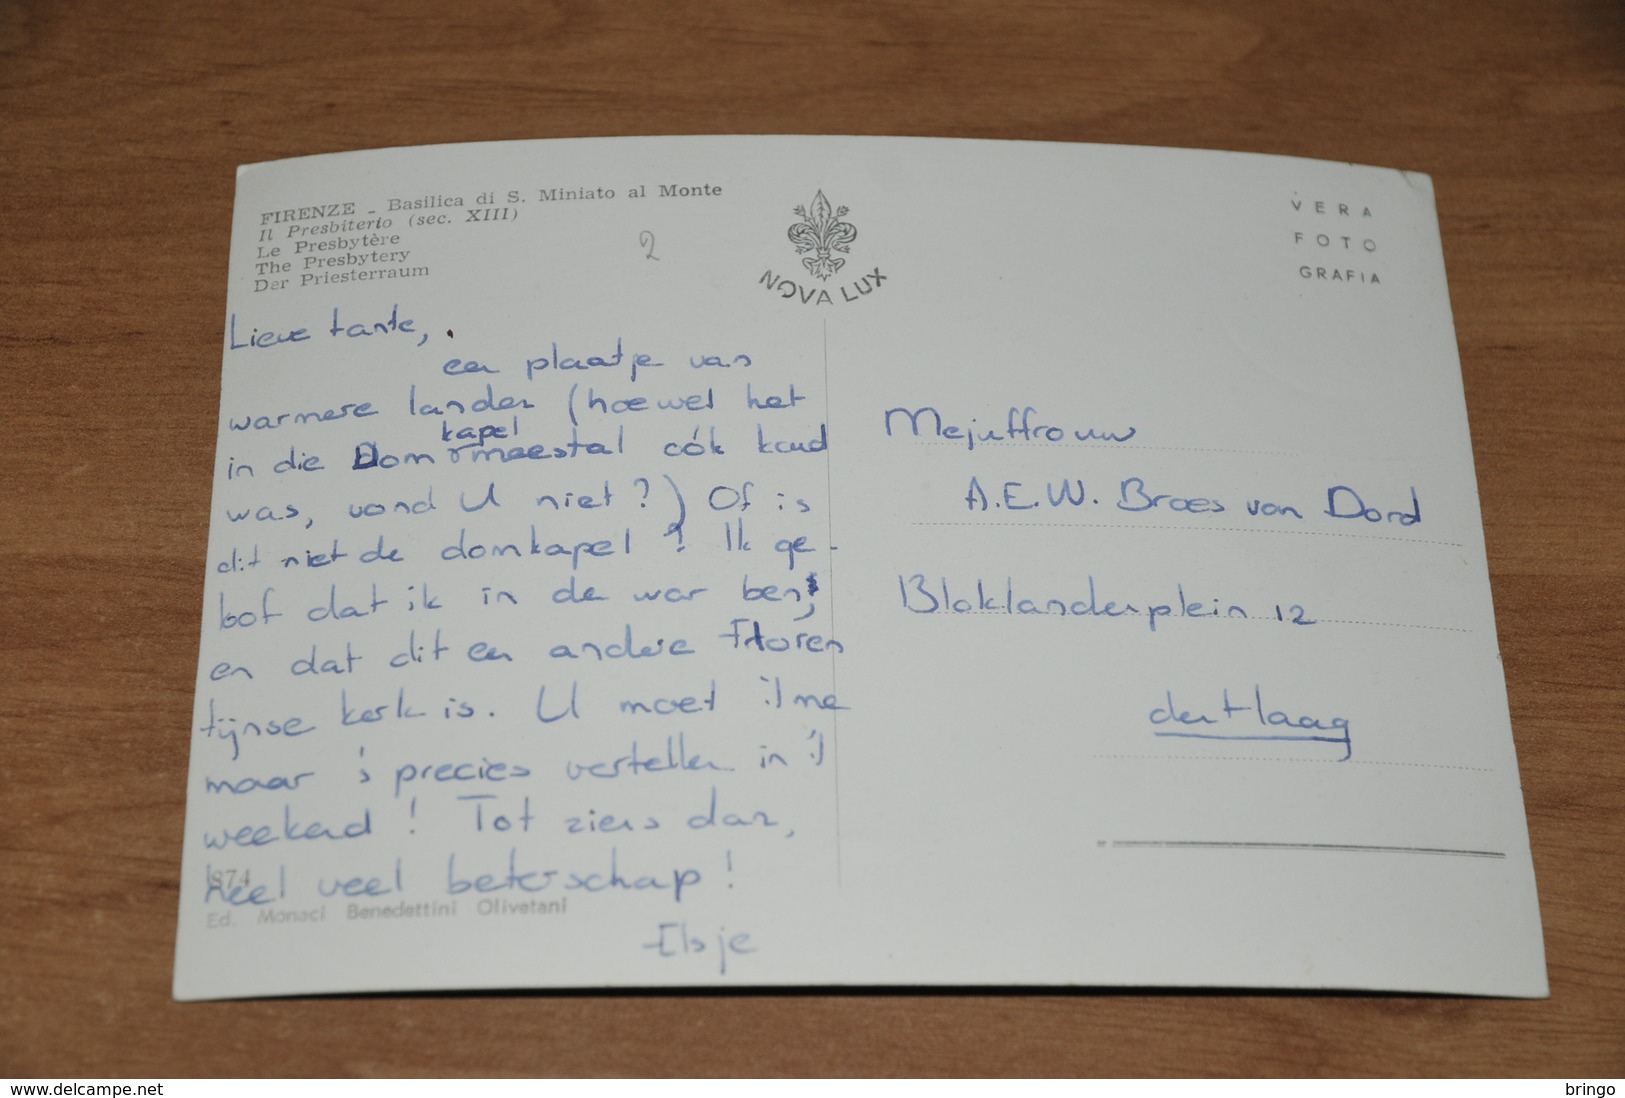 FIRENZE - Basilica di S. Miniato al Monte
Il Presbiterio (sec. XIII)
Le Presbytère
The Presbytery
Der Priesterraum
2
NOVA LUX
VERA
FOTO
GRAFIA
Lieve tante,
een plaatje van
warmere landen (hoewel het
kapel
in die Dom meestal oók koud
was, vond U niet?) Of is
dit niet de domkapel? Ik ge-
loof dat ik in de war ben,
en dat dit een andere Floren
tijnse kerk is. U moet 't me
maar 's precies vertellen in 't
weekend! Tot ziens dan,
heel veel beterschap!
Elsje
874
Ed. Monaci Benedettini Olivetani
Mejuffrouw
A.E.W. Broes van Dord
Bloklanderplein 12
den Haag
www.delcampe.net
bringo